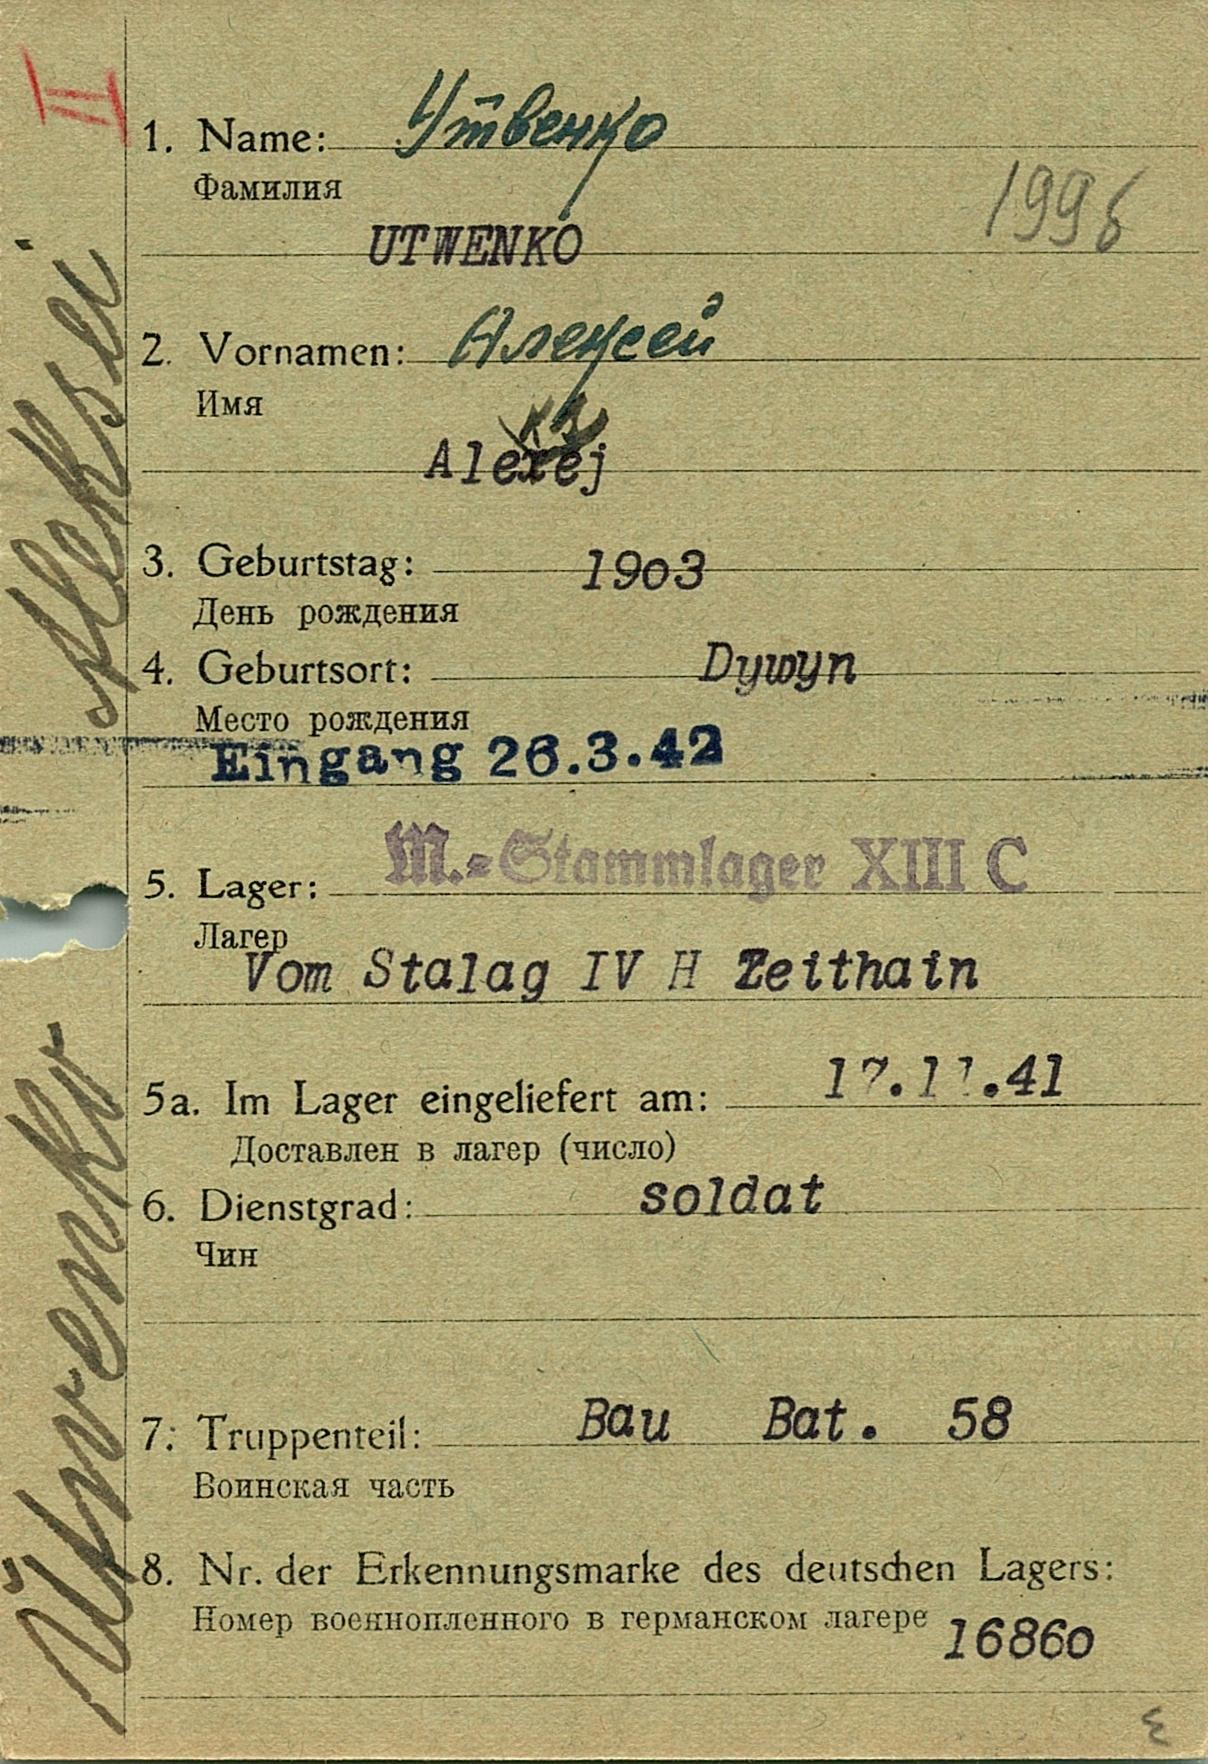 II
1. Name: Утвенко
Фамилия
1998
UTWENKO
2. Vornamen: Алексей
Имя
ks
Alexej
3. Geburtstag: 1903
День рождения
4. Geburtsort: Dywyn
Место рождения
Eingang 26.3.42
5. Lager: M.=Stammlager XIII C
Лагер
Vom Stalag IV H Zeithain
5a. Im Lager eingeliefert am: 17.11.41
Доставлен в лагер (число)
6. Dienstgrad: soldat
Чин
7. Truppenteil: Bau Bat. 58
Воинская часть
8. Nr. der Erkennungsmarke des deutschen Lagers:
Номер военнопленного в германском лагере 16860
Utwenko Aleksei